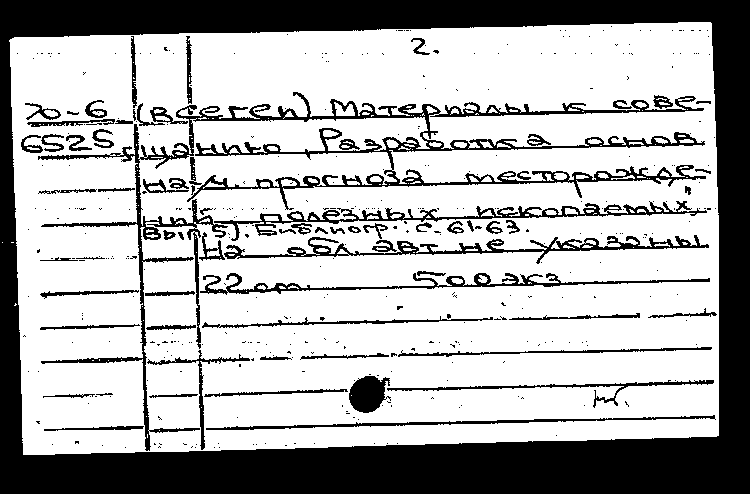 2.
70-6 (ВСЕГЕИ) Материалы к сове-
6525 щанию „Разработка основ
науч. прогноза месторожде-
ний полезных ископаемых"
Вып. 5). Библиогр.: с. 61-63.
На обл. авт. не указаны
22 см. 500 экз